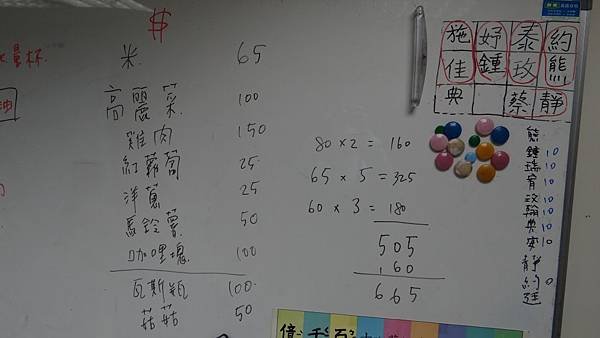 $
量杯
油
米 65
高麗菜 100
雞肉 150
紅蘿蔔 25
洋蔥 25
馬鈴薯 50
咖哩塊 100
瓦斯瓶 100
菇菇 50
80 × 2 = 160
65 × 5 = 325
60 × 3 = 180
505
160
665
施 妤 泰 約
佳 鍾 玫 熊
典 蔡 靜
熊
鍾 10
瑞 10
宥 10
玫 10
翰 10
典 10
安 10
靜
約 0
廷
億 千 百